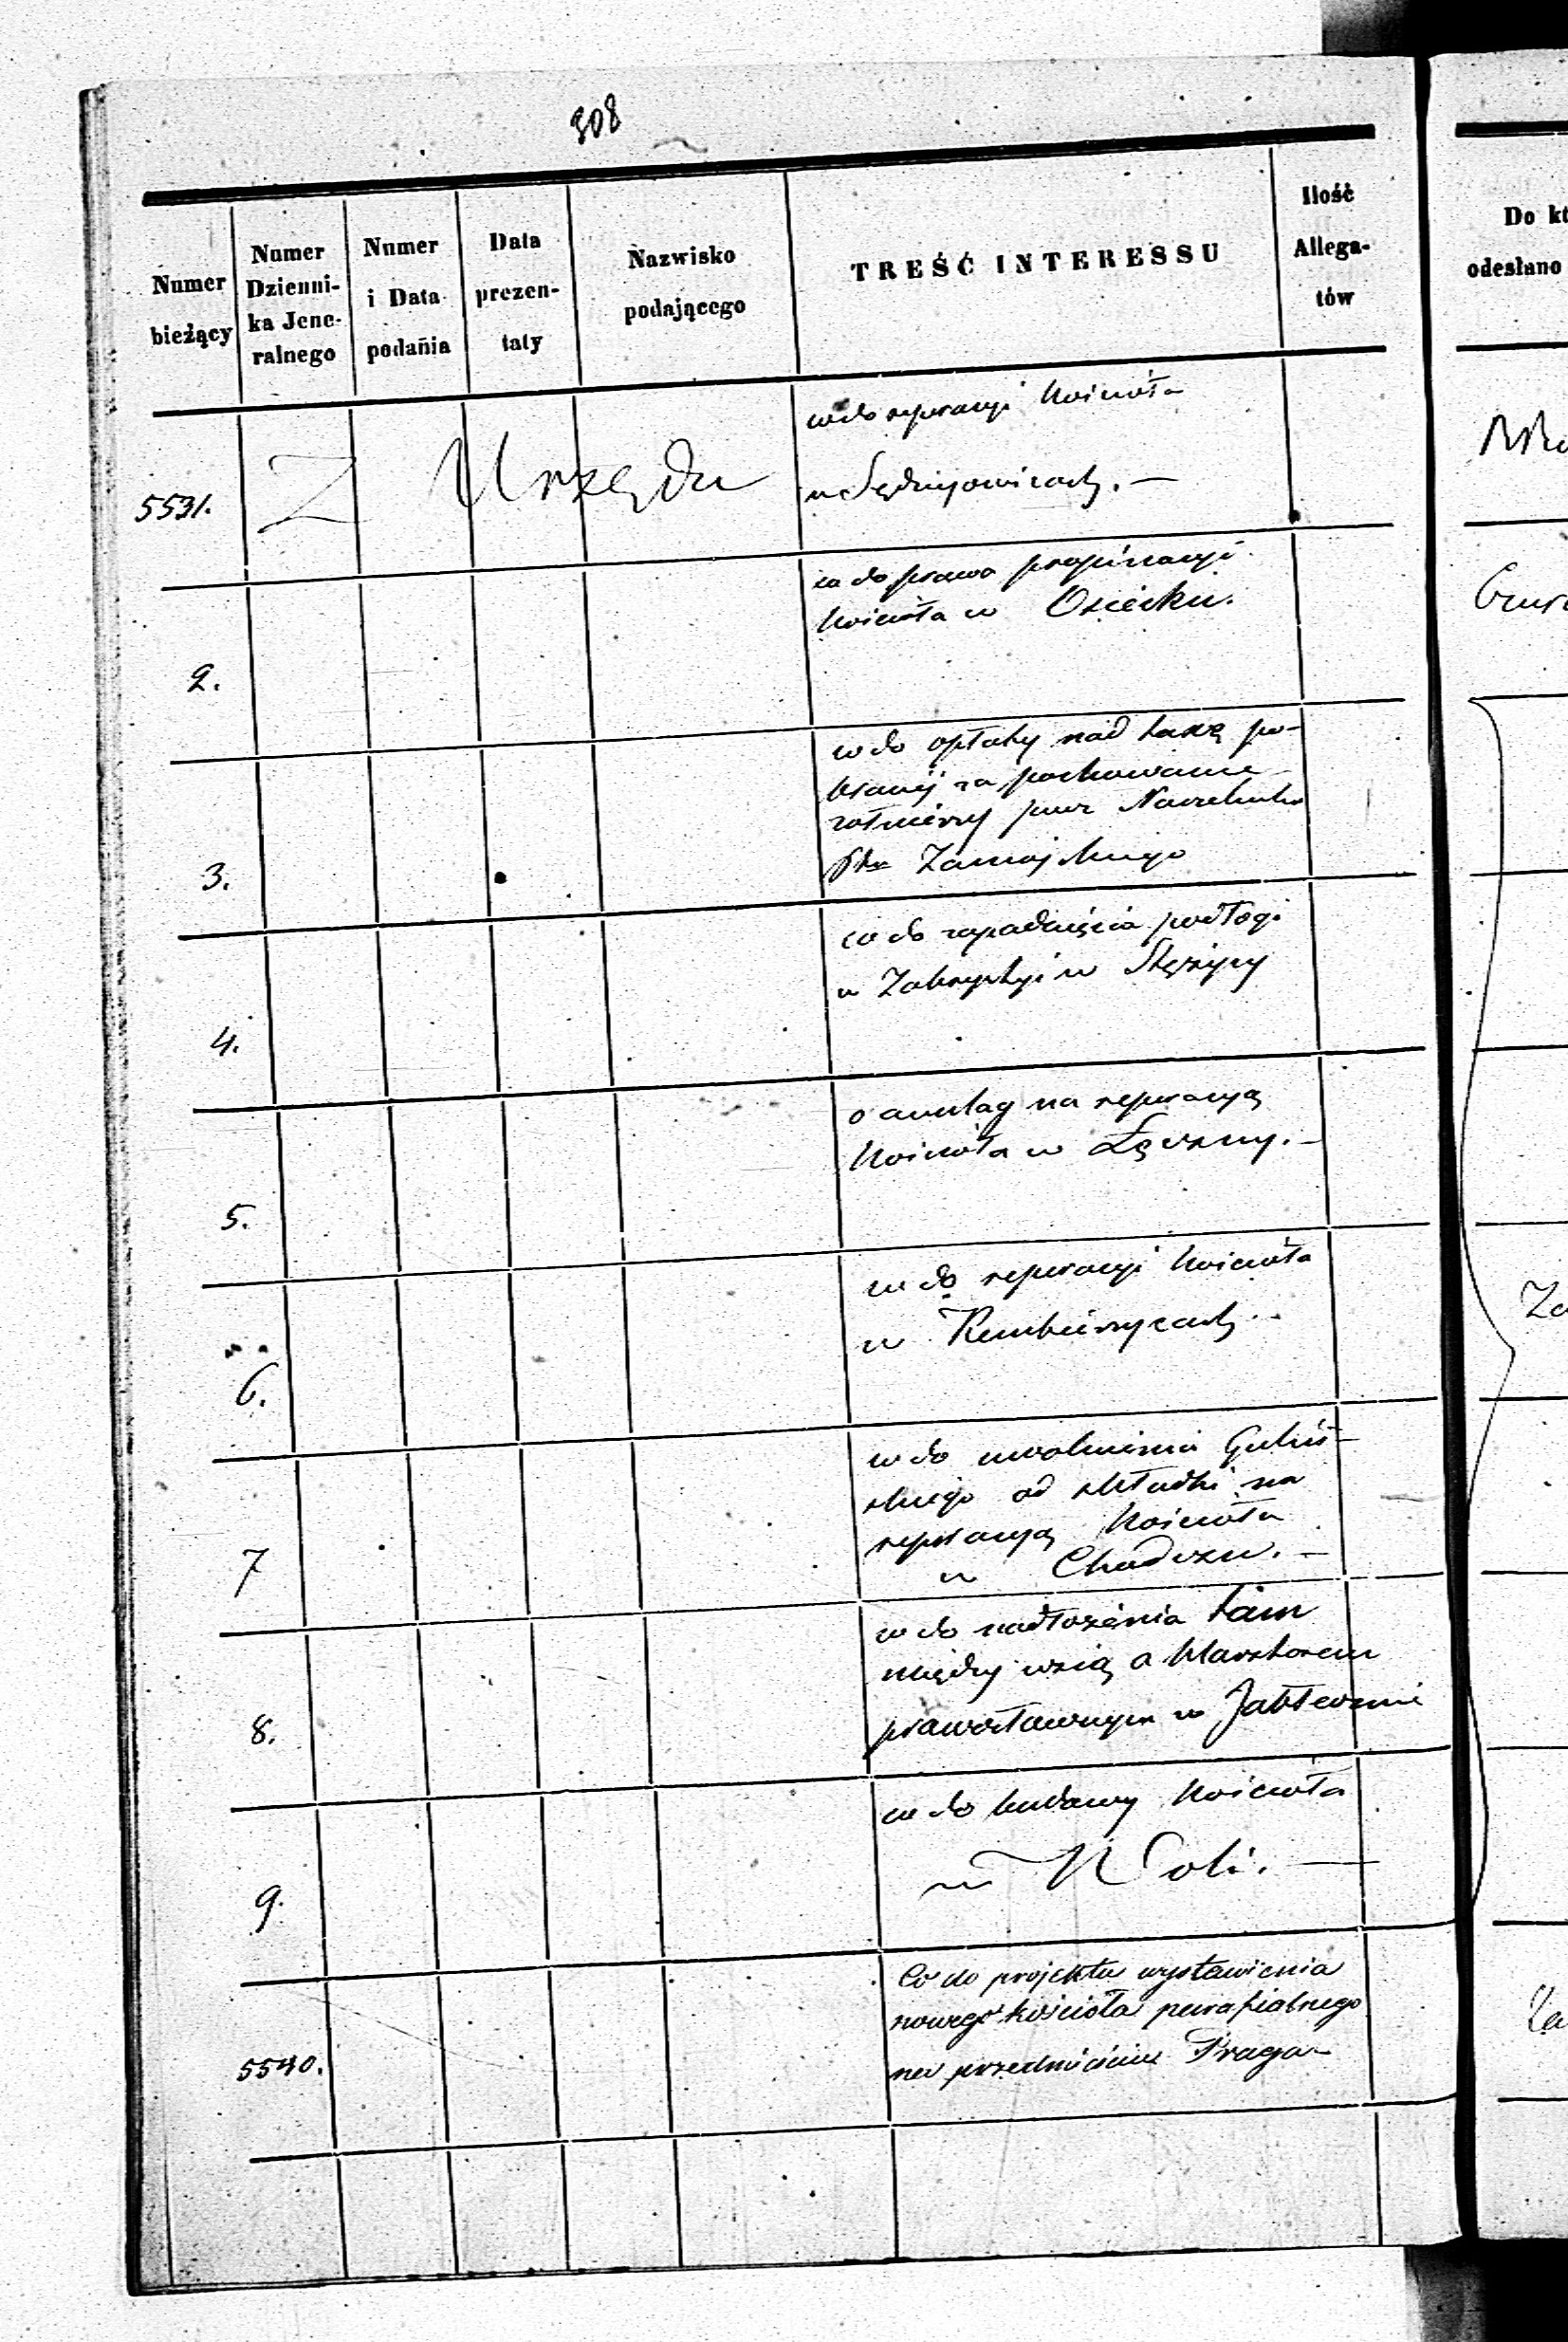 308
Numer
bieżący
Numer
Dzienni-
ka Jene-
ralnego
Numer
i Data
podania
Data
prezen-
taty
Nazwisko
podającego
TREŚĆ INTERESSU
Ilość
Allega-
tów
Do kt
odesłano
5531.
Z Urzędu
co do reperacyi kościoła
w Sędziejowicach. —
2.
co do prawa propinacyi
kościoła w Osiecku.
3.
co do opłaty nad taxę po-
branéj za pochowanie
żołnierzy przez Naczelnika
Ptu Zamojskiego
4.
co do zapadnięcia podłogi
w Zakrystyi w Stężycy
5.
o anszlag na reperacyą
kościoła w Łęczny. —
6.
co do reperacyi kościoła
w Rembieszycach
7
co do uwolnienia
skiego od składki na
reperacyą kościoła
w Chodczu. —
8.
co do nadłożenia tam
między wsią a klasztorem
prawosławnym w Jabłecznie
9.
co do budowy kościoła
w Woli. —
5540.
Co do projektu wystawienia
nowego kościoła parafialnego
na przedmieściu Praga
Za